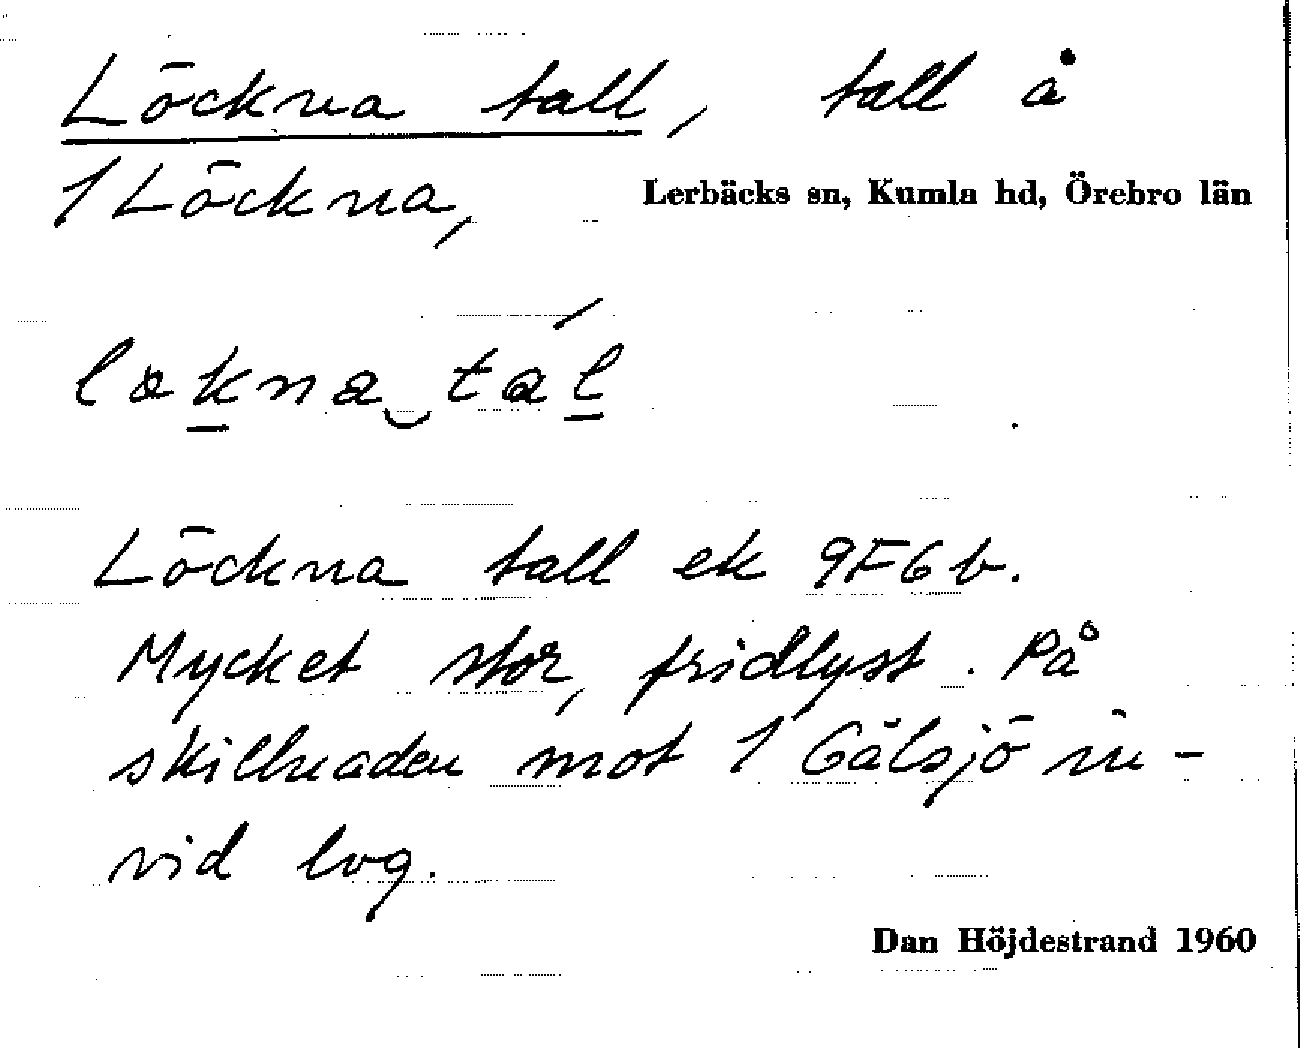 Löckna tall, tall å
1 Löckna, Lerbäcks sn, Kumla hd, Örebro län
løkna‿tal
Löckna tall ek 9F6b.
Mycket stor, fridlyst. På
skillnaden mot 1 Gälsjö in-
vid lvg.
Dan Höjdestrand 1960